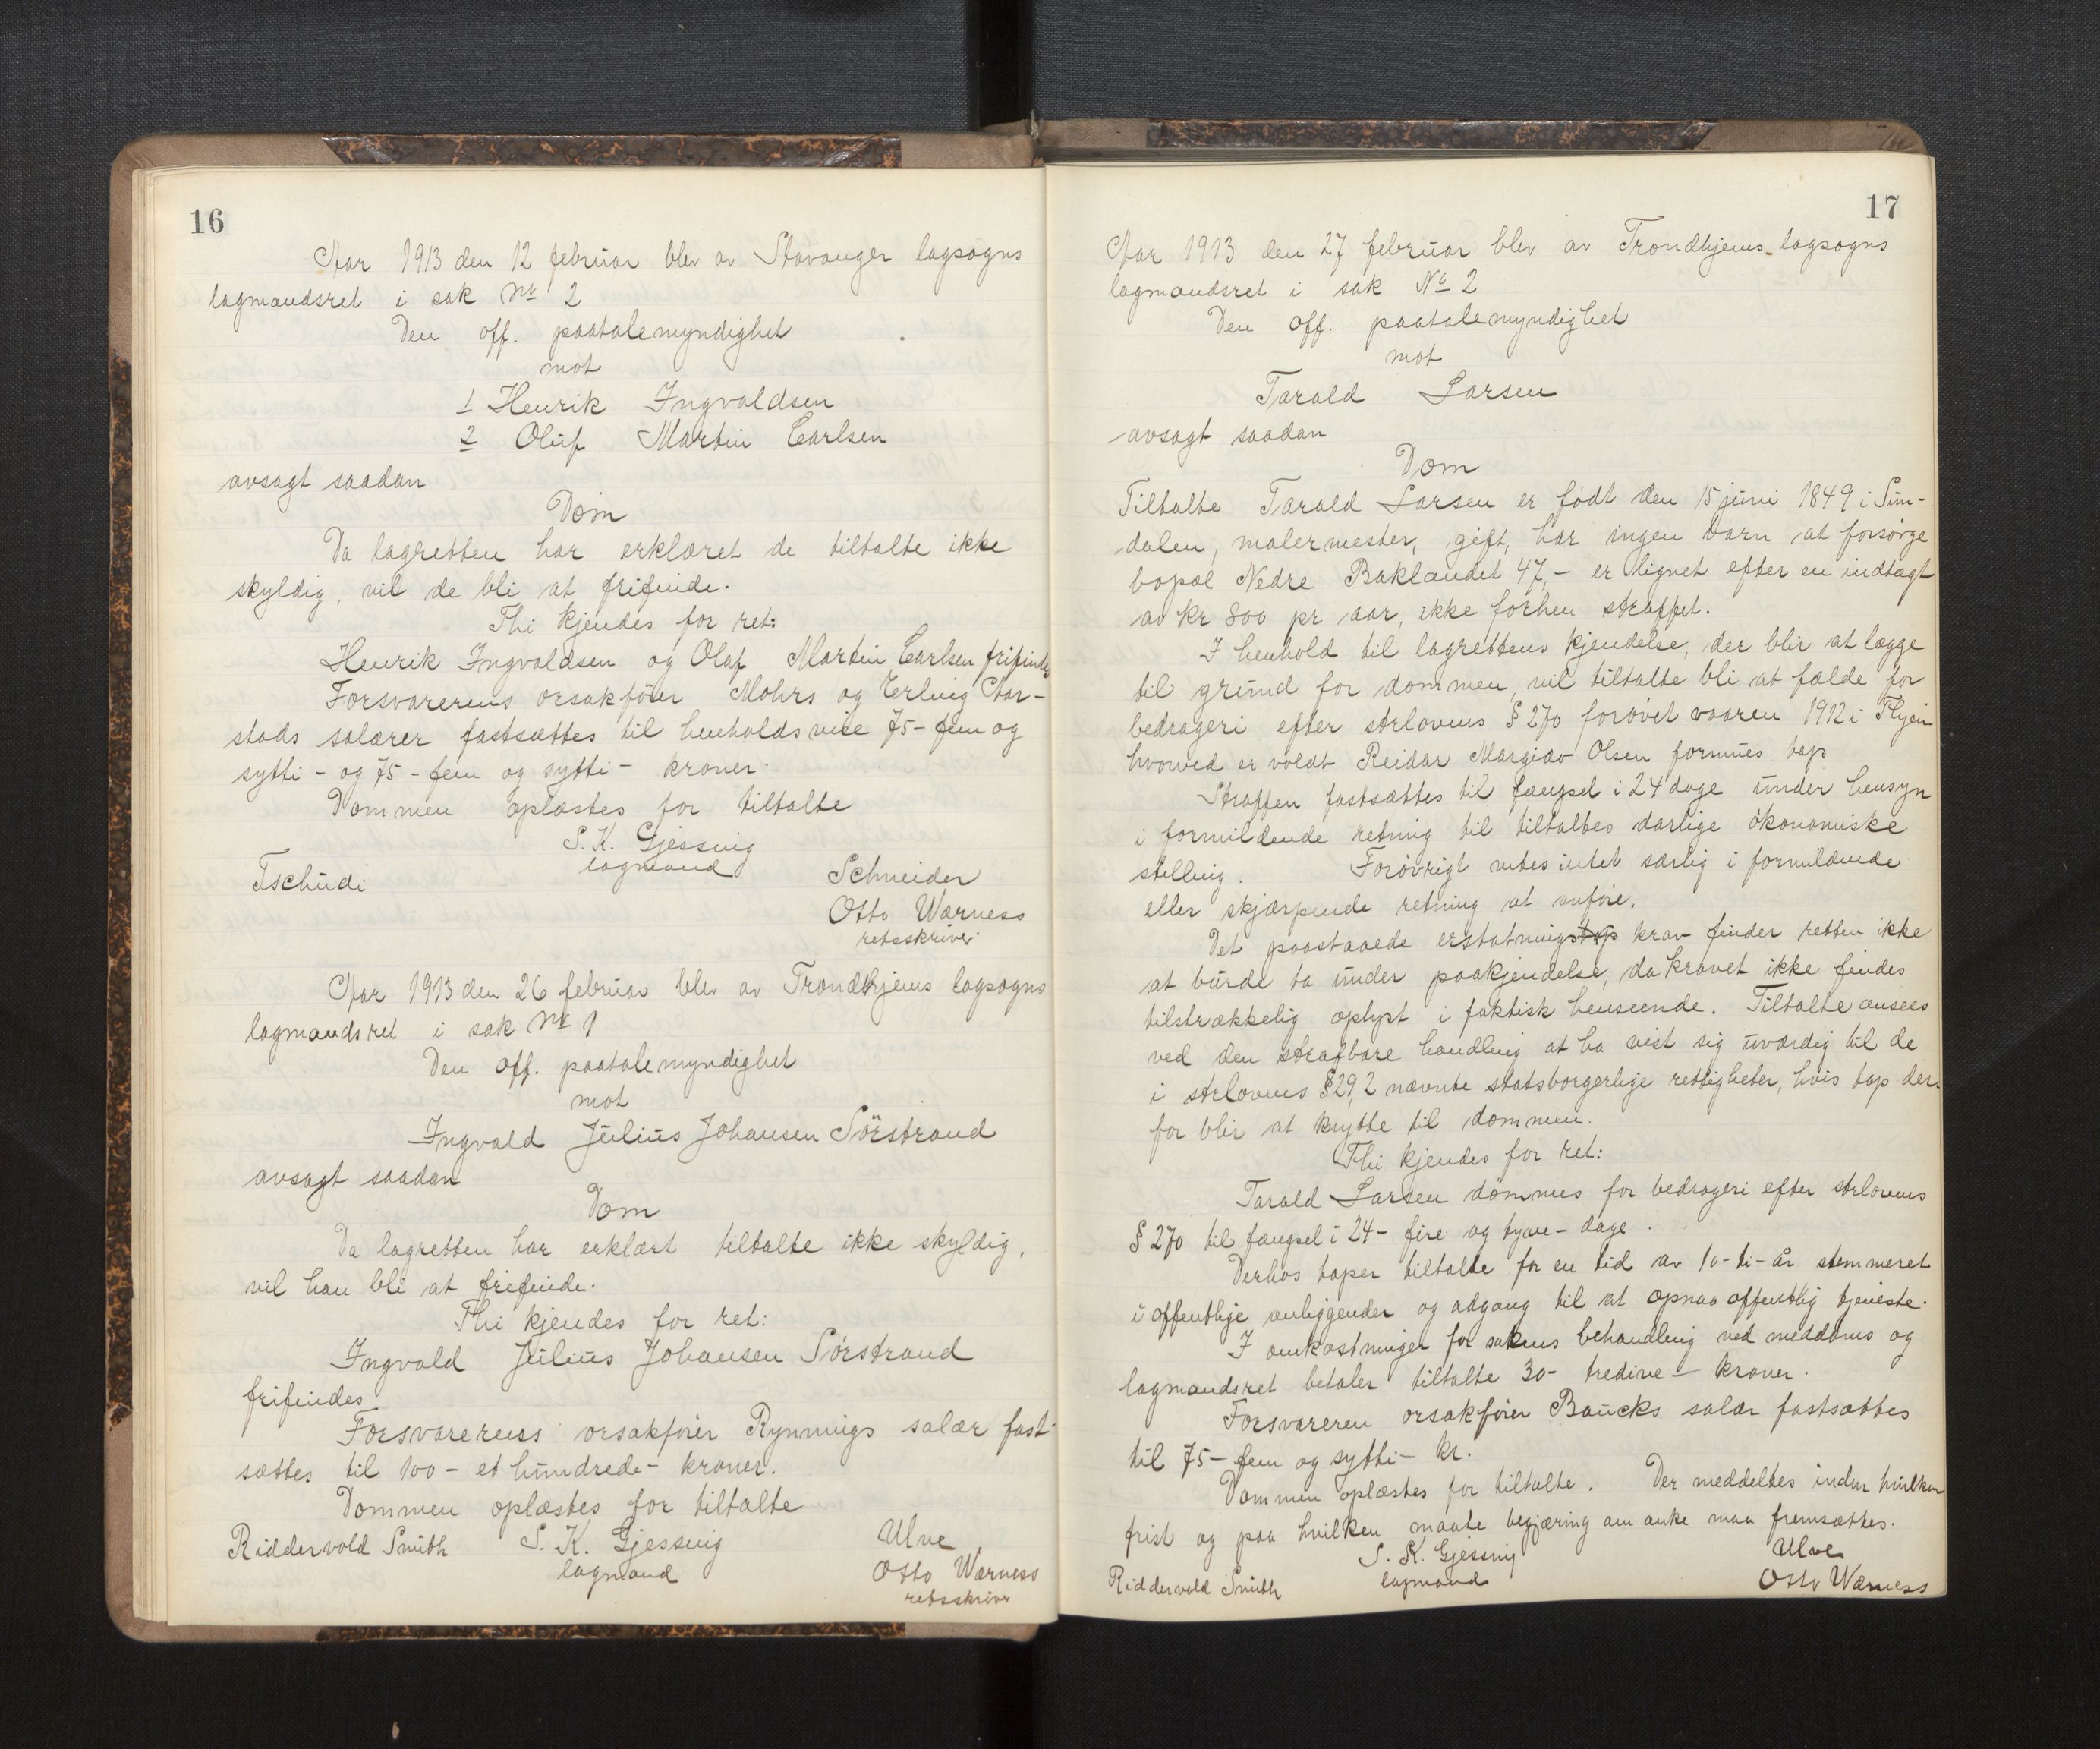 16
Aar 1913 den 12 februar blev av Stavanger lagsogns
lagmandsret i sak Nr 2
Den off. paatalemyndighet
mot
1 Henrik Ingvaldsen
2 Oluf Martin Carlsen
avsagt saadan
Dom
Da lagretten har erklæret de tiltalte ikke
skyldig, vil de bli at frifinde.
Thi kjendes for ret:
Henrik Ingvaldsen og Olaf Martin Carlsen frifindes
Forsvarerens orsakfører Mohrs og Erling Aar-
stads salærer fastsættes til henholdsvise 75 - fem og
sytti - og 75 - fem og sytti - kroner.
Dommen oplæstes for tiltalte
S. K. Gjessing
lagmand
Tschudi
Schneider
Otto Wærness
retsskriver
Aar 1913 den 26 februar blev av Trondhjems lagsogns
lagmandsret i sak Nr 1
Den off. paatalemyndighet
mot
Ingvald Julius Johansen Sörstrand
avsagt saadan
Dom
Da lagretten har erklært tiltalte ikke skyldig,
vil han bli at frifinde.
Thi kjendes for ret:
Ingvald Julius Johansen Sörstrand
frifindes
Forsvarerens orsakfører Rynnings salær fast-
sættes til 100 - et hundrede - kroner.
Dommen oplæstes for tiltalte
Riddervold Smith S. K. Gjessing Ulve
lagmand Otto Wærness
retsskriver
17
Aar 1913 den 27 februar blev av Trondhjems lagsogns
lagmandsret i sak No 2
Den off. paatalemyndighet
mot
Tarald Larsen
avsagt saadan
Dom
Tiltalte Tarald Larsen er født den 15 juni 1849 i Sun-
dalen, malermester, gift, har ingen barn at forsørge
bopæl Nedre Baklandet 47, - er lignet efter en indtægt
av kr 800 pr aar, ikke forhen straffet.
I henhold til lagrettens kjendelse, der blir at lægge
til grund for dommen, vil tiltalte bli at fælde for
bedrageri efter strlovens § 270 forøvet vaaren 1912 i Thjem
hvorved er voldt Reidar Margido Olsen formues tap
Straffen fastsættes til fængsel i 24 dage under hensyn
i formildende retning til tiltaltes darlige økonomiske
stilling. Forøvrigt vites intet særlig i formildende
eller skjærpende retning at anføre.
Det paastaaede erstatningstap krav finder retten ikke
at burde ta under paakjendelse, da kravet ikke findes
tilstrækkelig oplyst i faktisk henseende. Tiltalte ansees
ved den strafbare handling at ha vist sig uværdig til de
i strlovens § 29, 2 nævnte statsborgerlige rettigheter, hvis tap der-
for blir at knytte til dommen.
Thi kjendes for ret:
Tarald Larsen dömmes for bedrageri efter strlovens
§ 270 til fængsel i 24 - fire og tyve - dage.
Derhos taper tiltalte for en tid av 10 - ti - år stemmeret
i offentlige anliggender og adgang til at opnaa offentlig tjeneste.
I omkostninger for sakens behandling ved meddoms og
lagmandsret betaler tiltalte 30 - tredive - kroner.
Forsvareren orsakfører Baucks salær fastsættes
til 75 - fem og sytti - kr.
Dommen oplæstes for tiltalte. Der meddeltes inden hvilken
frist og paa hvilken maate begjæring om anke maa fremsættes.
S. K. Gjessing Ulve
Riddervold Smith lagmand Otto Wærness